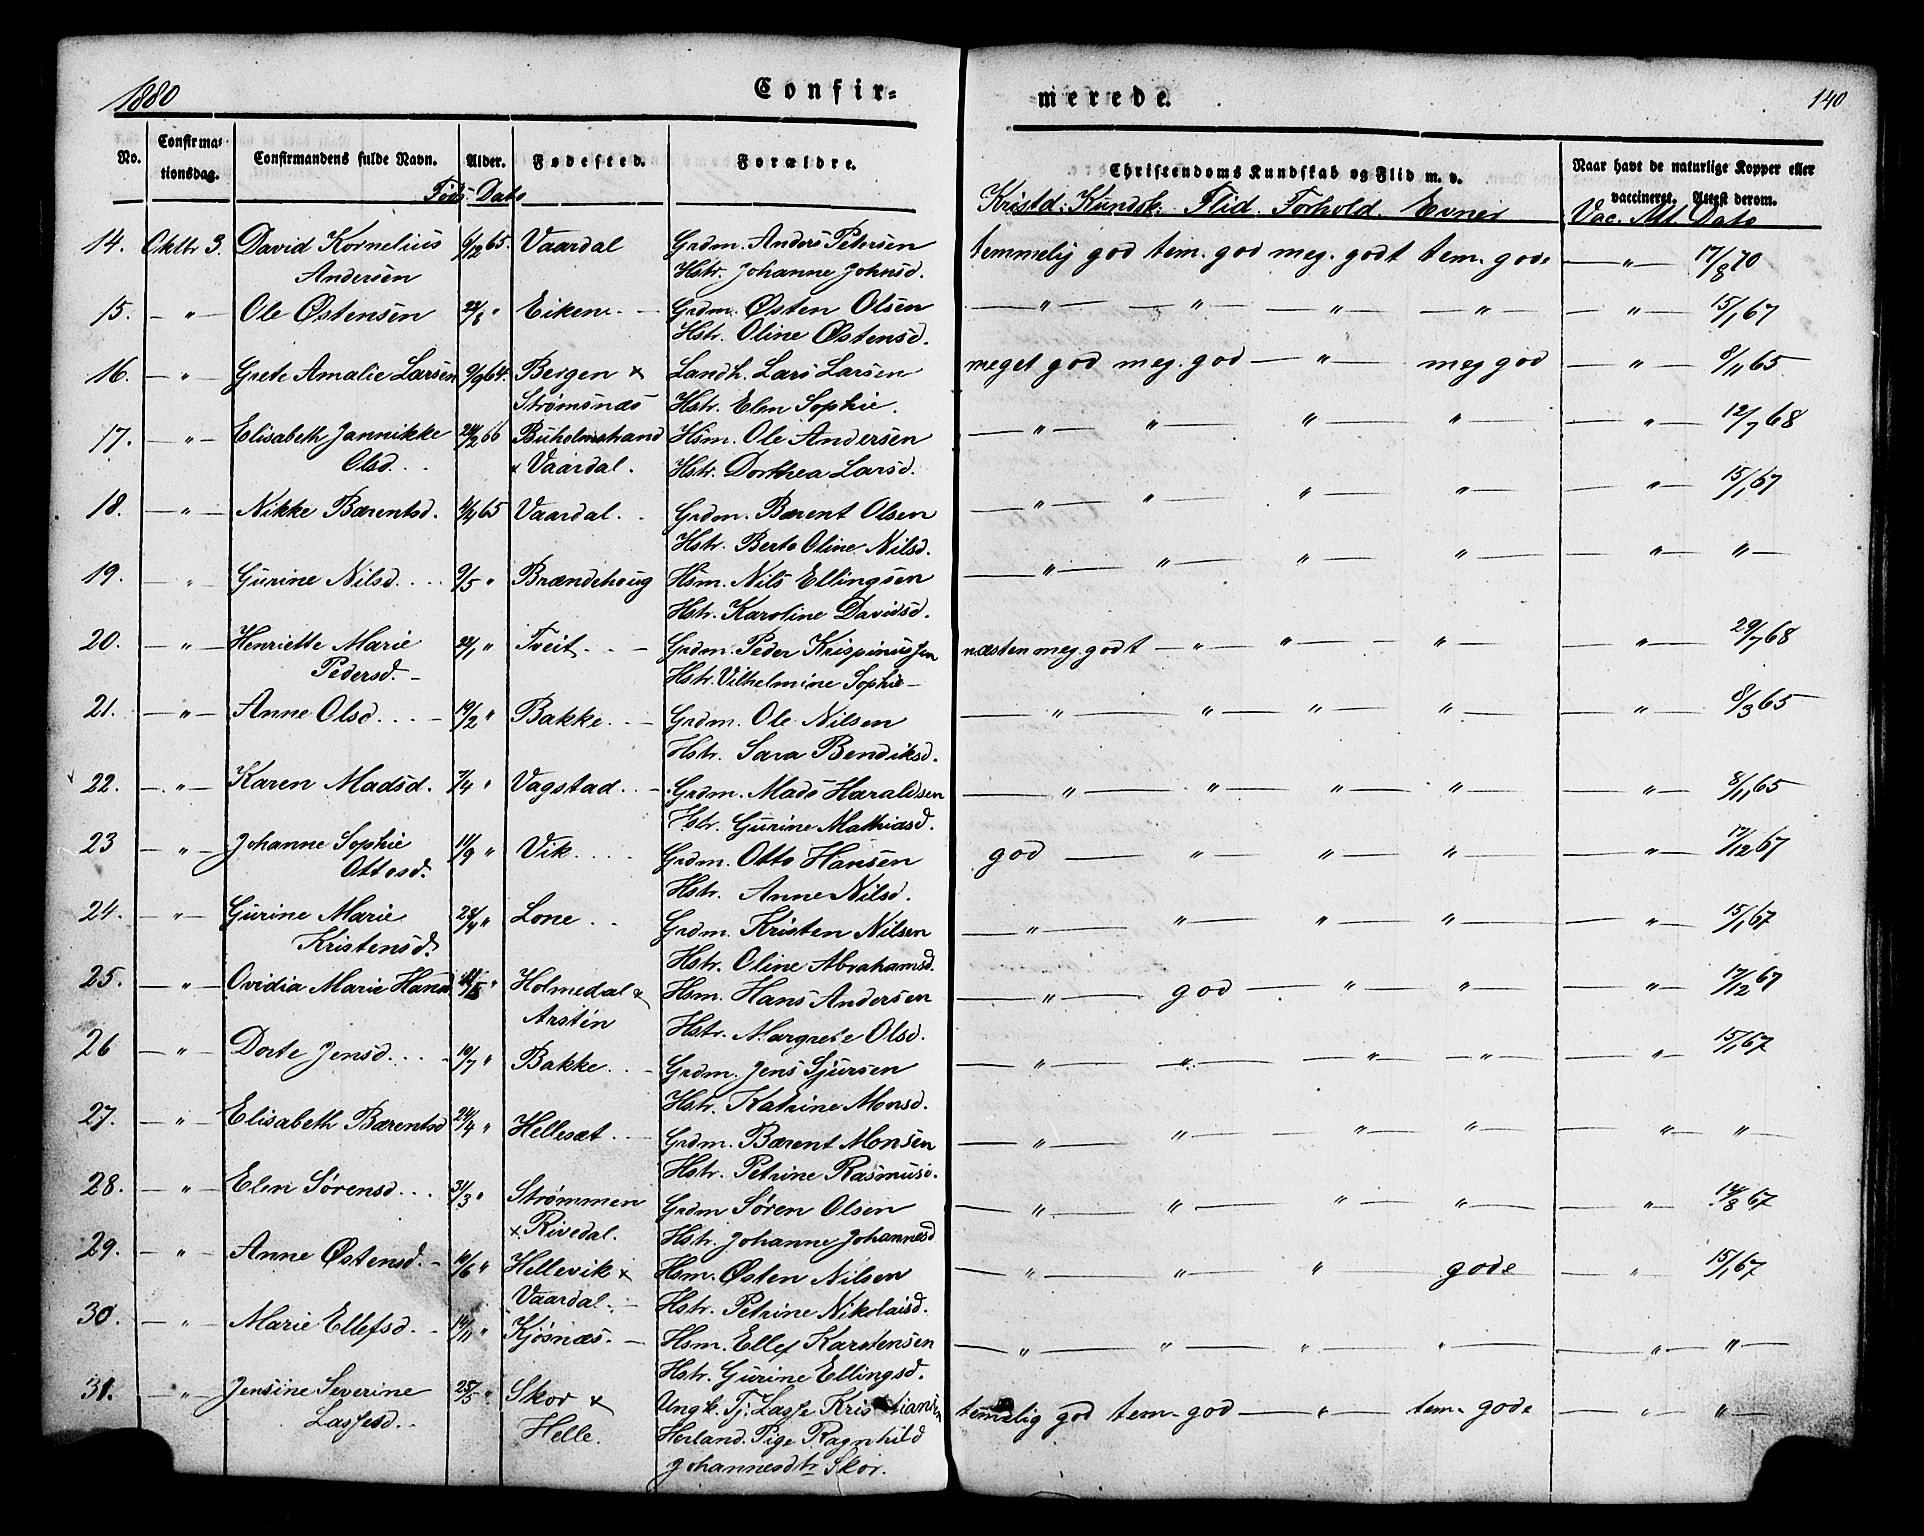 1880 Confirmerede. 140
No. Confirmationsdag. Confirmandens fulde Navn. Alder. Fødested. Forældre. Christendoms Kundskab og Flid m. v. Naar havt de naturlige Kopper eller vaccineret. Attest derom.
Føds. Dato Kristd. Kundsk. Flid. Forhold. Evner Vac. Att. Dato
14. Oktbr 3. David Kornelius 6/12 65. Vaardal Grdm. Anders Petersen temmelig god tem. god meg. godt tem. gode — " — 17/8 70
Andersen Hstr. Johanne Johnsd.
15. — " — Ole Østensen 22/8 " Eiken — Grdm. Østen Olsen — " — — " — — " — — " — — " — 15/1 67
Hstr. Oline Østensd.
16. — " — Grete Amalie Larsen 9/9 64. Bergen x Landh. Lars Larsen meget god meg. god — " — meg god — " — 8/11 65
Strømsnæs Hstr. Elen Sophie.
17. — " — Elisabeth Jannikke 24/2 66 Buholmstrand Hsm. Ole Andersen — " — " — " — " — — " — 12/7 68
Olsd. x Vaardal. Hstr. Dorthea Larsd.
18. — " — Nikke Bærentsd. 4/4 65 Vaardal. Grdm. Bærent Olsen — " — " — " — " — — " — 15/1 67
Hstr. Berte Oline Nilsd.
19. — " — Gurine Nilsd. 9/5 " Brændehoug Hsm. Nils Ellingsen — " — " — " — " — — " — " —
Hstr. Karoline Davidsd.
20. — " — Henriette Marie 22/1 " Tveit. Grdm. Peder Krispinussen næsten meg. godt — " — " — " — — " — 29/7 68
Pedersd. — Hstr. Vilhelmine Sophie —
21. — " — Anne Olsd. 19/2 " Bakke. Grdm. Ole Nilsen — " — " — " — " — — " — 8/3 65
Hstr. Sara Bendiksd.
22. — " — Karen Madsd. 7/4 " Vagstad. Grdm. Mads Haraldsen — " — " — " — " — — " — 8/11 65
Hstr. Gurine Mathiasd.
23 — " — Johanne Sophie 11/9 " Vik. Grdm. Otto Hansen god — " — " — " — — " — 17/12 67
Ottosd. Hstr. Anne Nilsd.
24. — " — Gurine Marie 28/4 " Lone Grdm. Kristen Nilsen — " — " — " — " — — " — 15/1 67
Kristensd. Hstr. Oline Abrahamsd.
25. — " — Ovidia Marie Hansd " Holmedal x Hsm. Hans Andersen — " — god — " — " — — " — 17/12 67
Arstein Hstr. Margrete Olsd.
26 — " — Dorte Jensd. 10/7 " Bakke. Grdm. Jens Sjursen — " — " — " — " — — " — 15/1 67
Hstr. Katrine Monsd.
27. — " — Elisabeth Bærentsd 24/4 " Hellesæt. Grdm. Bærent Monsen — " — " — " — " — — " — " —
Hstr. Petrine Rasmusd.
28. — " — Elen Sørensd. 31/3 " Strømmen Grdm Søren Olsen — " — " — " — " — — " — 14/8 67
x Rivedal. Hstr. Johanne Johannesd
29. — " — Anne Østensd. 16/6 " Hellevik x Hsm. Østen Nilsen — " — " — " — gode — " — 15/1 67
Vaardal. Hstr. Petrine Nikolaisd.
30. — " — Marie Ellefsd. 14/11 " Kjøsnæs. Hsm. Ellef Karstensen — " — " — " — " — — " — " —
Hstr. Gurine Ellingsd.
31. — " — Jensine Severine 25/5 " Skor x Ungk. Tj. Lasse Kristiansen temmelig god tem. god — " — tem. gode — " — " —
Lassesd. Helle. Herland. Pige Ragnhild
Johannesdtr Skor.